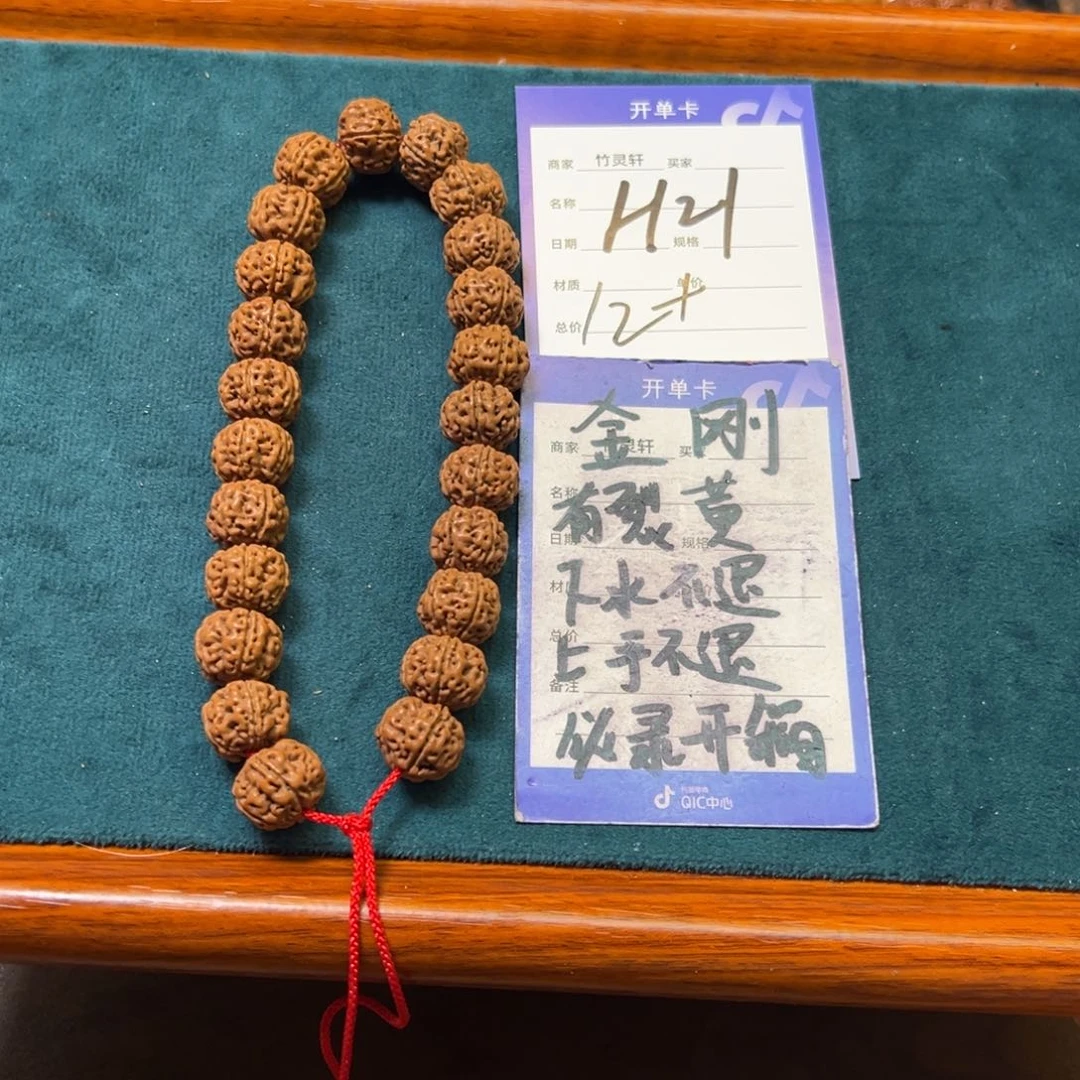 开单卡
商家 竹灵轩 买家
名称 H21
日期 规格
材质 单价
总价 12+
开单卡
金刚
商家 灵轩 买
名称
有裂 黄
日期 规格
下水不退
材
总价
上手不退
备注
必录开箱
抖音电商
QIC中心